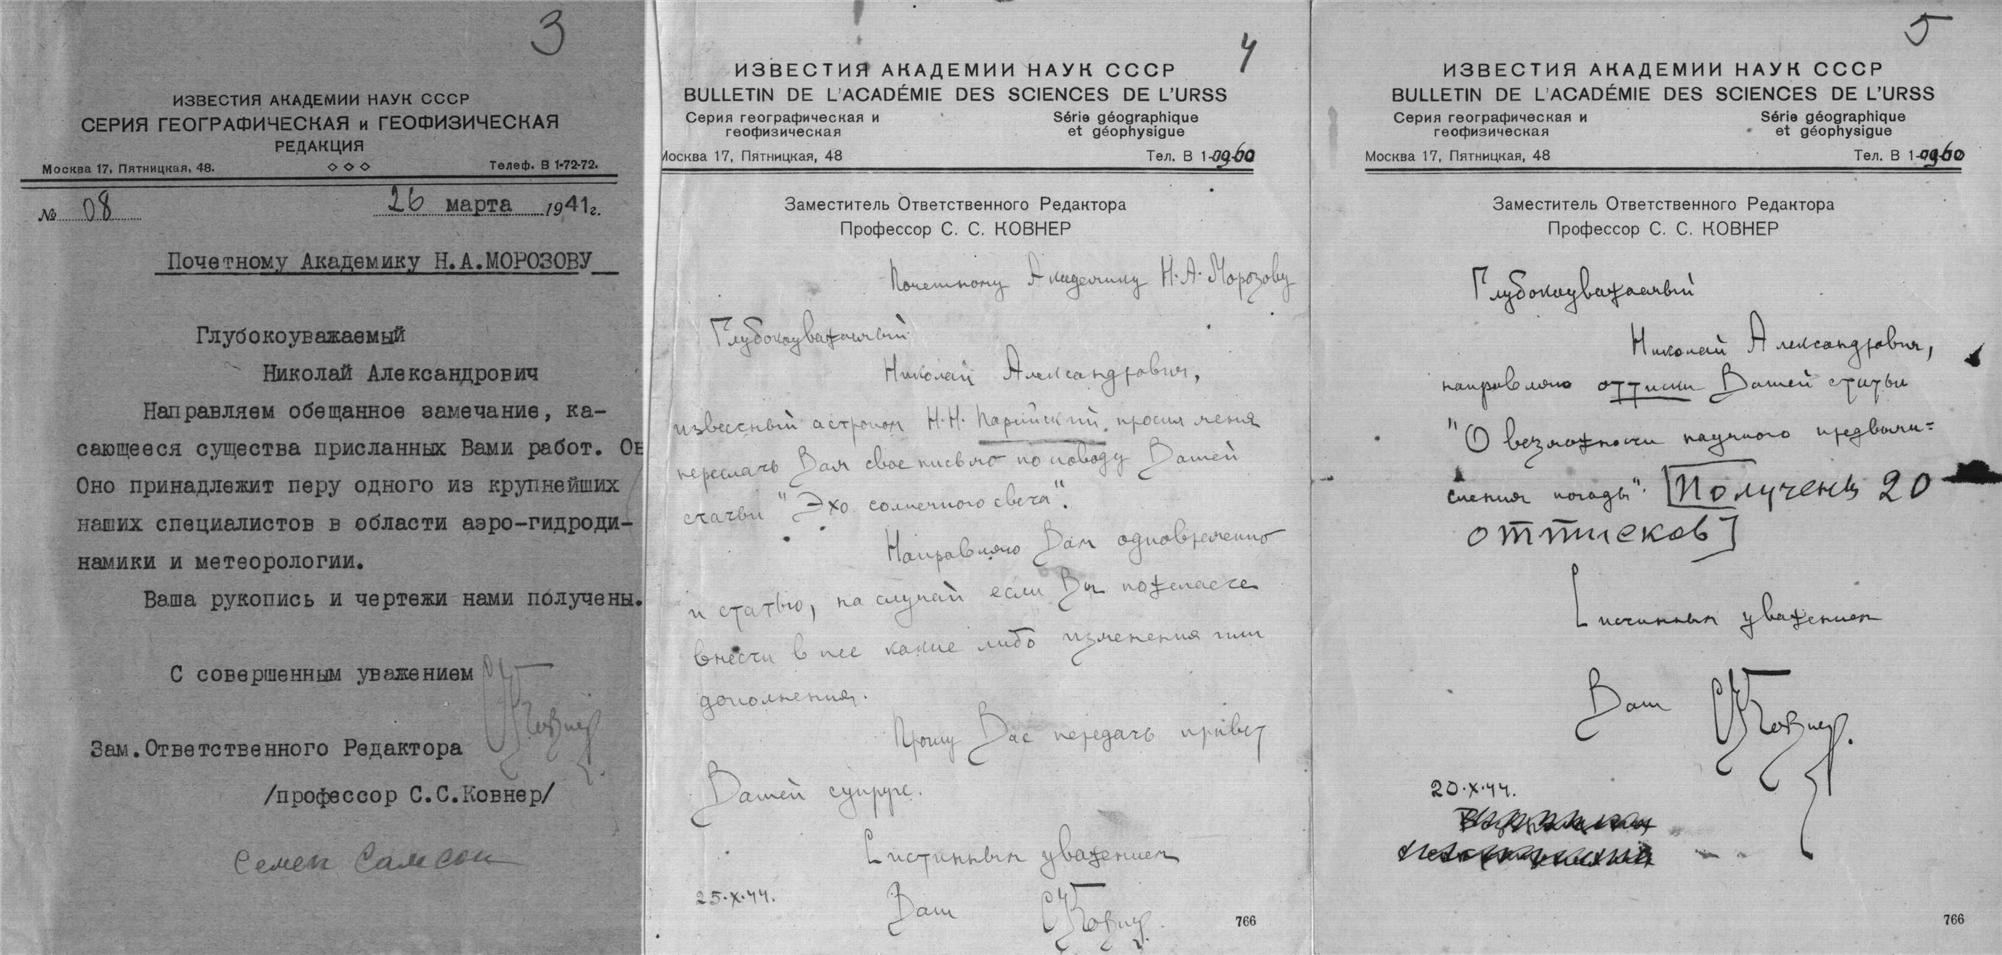 3
ИЗВЕСТИЯ АКАДЕМИИ НАУК СССР
СЕРИЯ ГЕОГРАФИЧЕСКАЯ и ГЕОФИЗИЧЕСКАЯ
РЕДАКЦИЯ
Москва 17, Пятницкая, 48.
Телеф. В 1-72-72.
№ 08
26 марта 1941г.
Почетному Академику Н.А.МОРОЗОВУ
Глубокоуважаемый
Николай Александрович
Направляем обещанное замечание, ка-
сающееся существа присланных Вами работ. Он
Оно принадлежит перу одного из крупнейших
наших специалистов в области аэро-гидроди-
намики и метеорологии.
Ваша рукопись и чертежи нами получены.
С совершенным уважением
СКовнер
Зам.Ответственного Редактора
/профессор С.С.Ковнер/
Семен Самсон
4
ИЗВЕСТИЯ АКАДЕМИИ НАУК СССР
BULLETIN DE L'ACADÉMIE DES SCIENCES DE L'URSS
Серия географическая и
геофизическая
Série géographique
et géophysigue
Москва 17, Пятницкая, 48
Тел. В 1-09-60
Заместитель Ответственного Редактора
Профессор С. С. КОВНЕР
Почетному Академику Н.А.Морозову
Глубокоуважаемый
Николай Александрович,
известный астроном Н.Н. Парийский, просил меня
переслать Вам свое письмо по поводу Вашей
статьи "Эхо солнечного света".
Направляю Вам одновременно
и статью, на случай если Вы пожелаете
внести в нее какие либо изменения или
дополнения.
Прошу Вас передать привет
Вашей супруге.
С истинным уважением
25.X.44.
Ваш СКовнер.
766
5
ИЗВЕСТИЯ АКАДЕМИИ НАУК СССР
BULLETIN DE L'ACADÉMIE DES SCIENCES DE L'URSS
Серия географическая и
геофизическая
Série géographique
et géophysigue
Москва 17, Пятницкая, 48
Тел. В 1-09-60
Заместитель Ответственного Редактора
Профессор С. С. КОВНЕР
Глубокоуважаемый
Николай Александрович,
направляю оттиски Вашей статьи
"О возможности научного предвычи=
сления погоды". [Получены 20
оттисков]
С истинным уважением
Ваш СКовнер.
20.X.44.
766